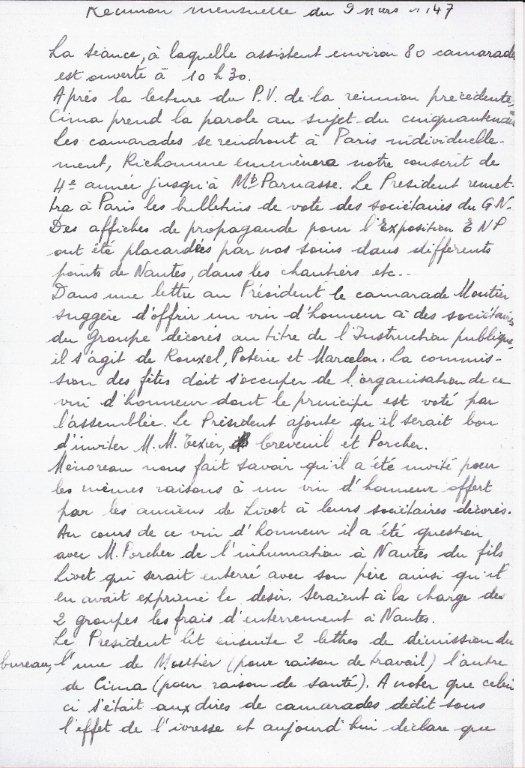 Réunion mensuelle du 9 Mars 1947
La séance, à laquelle assistent environ 80 camarades
est ouverte à 10 h 30.
Après la lecture du P.V. de la réunion précédente
Cima prend la parole au sujet du cinquantenaire
Les camarades se rendront à Paris individuelle-
ment, Richomme emmènera notre conscrit de
4e année jusqu'à Mt Parnasse. Le Président remet-
tra à Paris les bulletins de vote des sociétaires du G.N.
Des affiches de propagande pour l'Exposition E N P
ont été placardées par nos soins dans différents
points de Nantes, dans les chantiers etc...
Dans une lettre au Président le camarade Moutier
suggère d'offrir un vin d'honneur à des sociétaires
du Groupe décorés au titre de l'Instruction publique,
il s'agit de Rouxel, Poterie et Marcelon. La commis-
sion des fêtes doit s'occuper de l'organisation de ce
vin d'honneur dont le principe est voté par
l'assemblée. Le Président ajoute qu'il serait bon
d'inviter M.M. Texier, Creveuil et Porcher.
Ménoreau nous fait savoir qu'il a été invité pour
les mêmes raisons à un vin d'honneur offert
par les anciens de Livet à leurs sociétaires décorés.
Au cours de ce vin d'honneur il a été question
avec M. Porcher de l'inhumation à Nantes du fils
Livet qui serait enterré avec son père ainsi qu'il
en avait exprimé le désir. Seraient à la charge des
2 groupes les frais d'enterrement à Nantes.
Le Président lit ensuite 2 lettres de démission du
bureau, l'une de Moutier (pour raison de travail) l'autre
de Cima (pour raison de santé). A noter que celui
ci s'était aux dires de camarades dédit sous
l'effet de l'ivresse et aujourd'hui déclare que